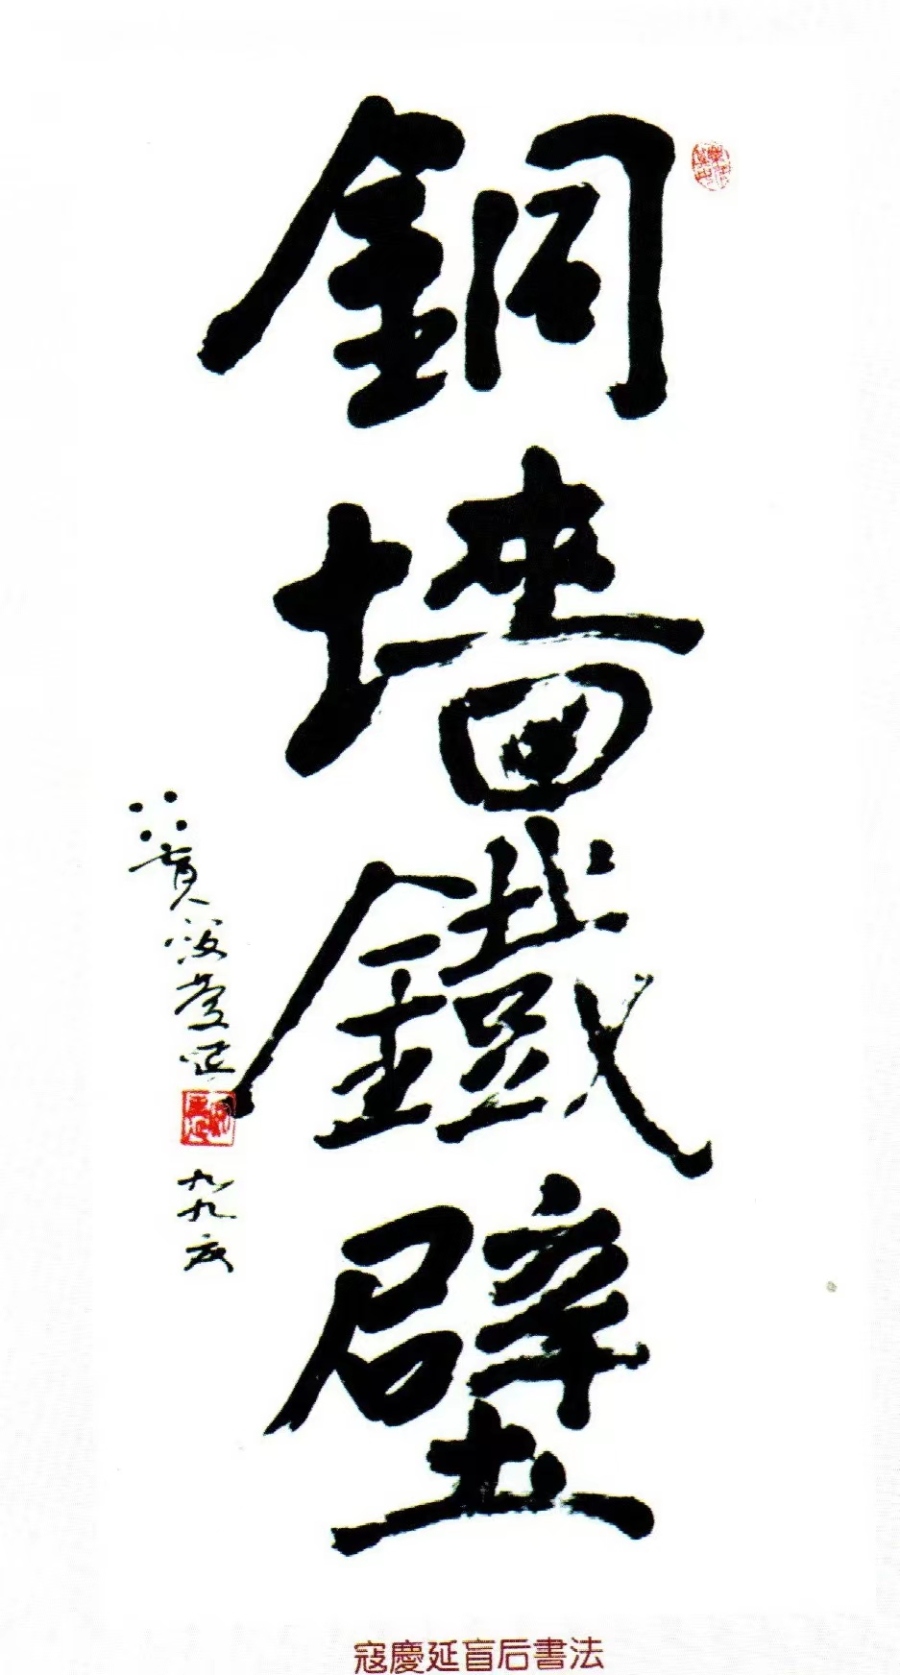 銅墻鐵壁
盲人寇慶延
九九庚
寇慶延盲后書法